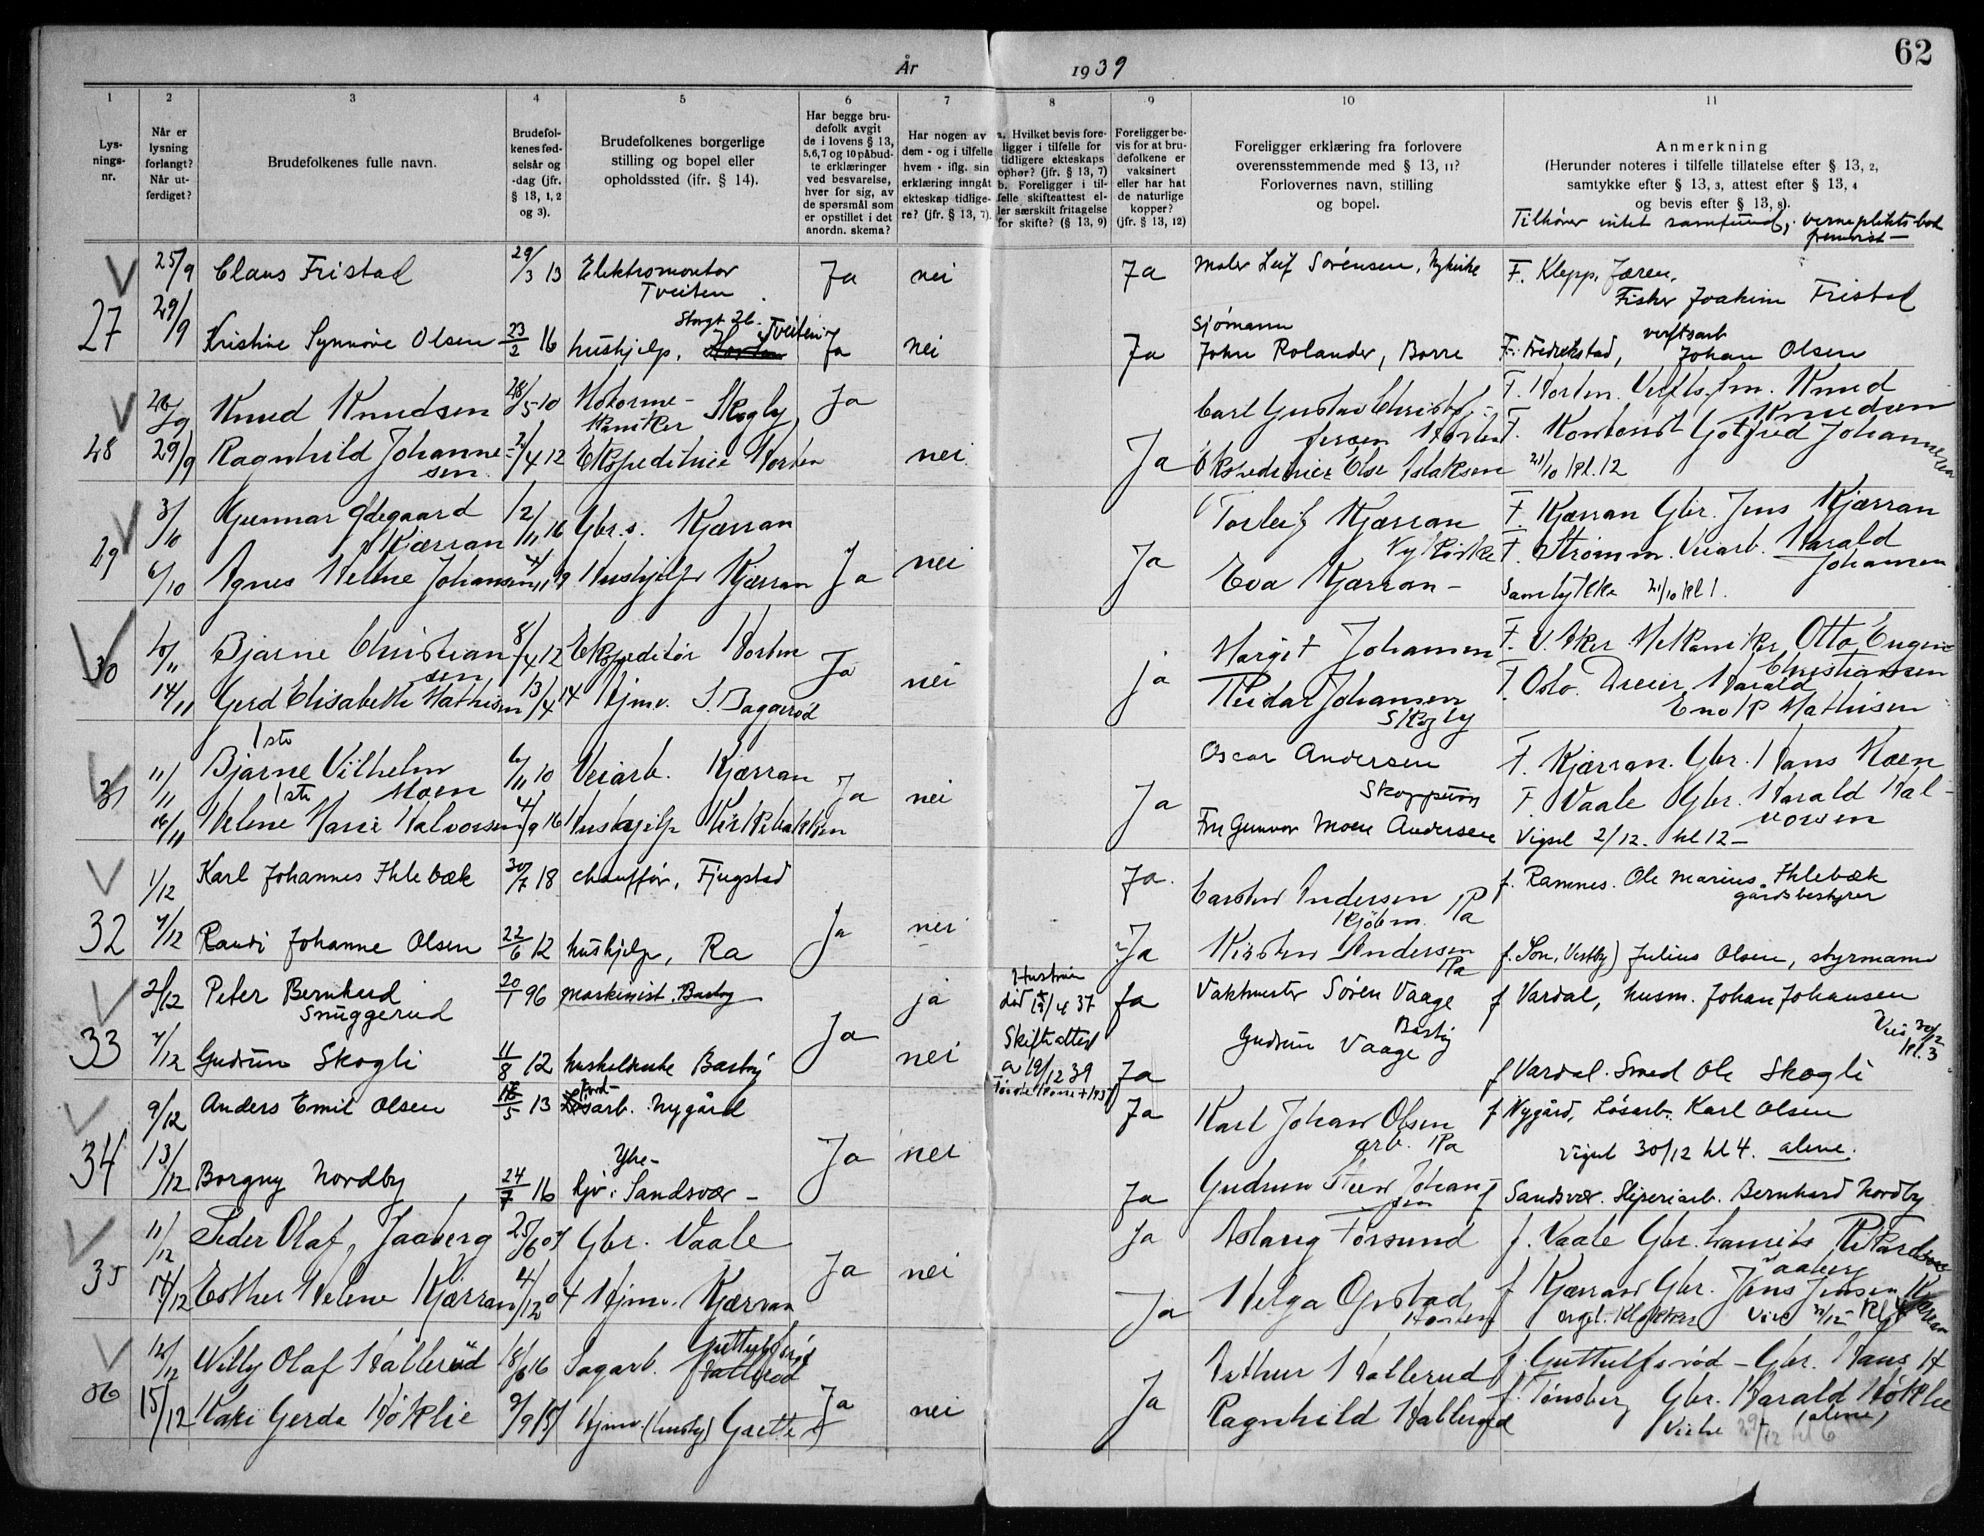 62
År 1939
1 2 3 4 5 6 7 8 9 10 11
Lys-nings-nr.
Når er lysning forlangt? Når ut-ferdiget?
Brudefolkenes fulle navn.
Brudefol-kenes fød-selsår og -dag (jfr. § 13, 1, 2 og 3).
Brudefolkenes borgerlige stilling og bopel eller opholdssted (ifr. § 14).
Har begge bru-defolk avgit de i lovens § 13, 5,6,7 og 10 påbud-te erklæringer ved besvarelse, hver for sig, av de spørsmål som er opstillet i det anordn. skema?
Har nogen av dem - og i tilfelle hvem - iflg. sin erklæring inngåt ekteskap tidlige-re? (jfr. § 13, 7).
a. Hvilket bevis fore-ligger i tilfelle for tidligere ekteskaps ophør? (jfr. § 13, 7) b. Foreligger i til-felle skifteattest el-ler særskilt fritagelse for skifte? (§ 13, 9)
Foreligger be-vis for at bru-defolkene er vaksinert eller har hat de naturlige kopper? (jfr. § 13, 12)
Foreligger erklæring fra forlovere overensstemmende med § 13, 11? Forlovernes navn, stilling og bopel.
Anmerkning (Herunder noteres i tilfelle tillatelse efter § 13, 2, samtykke efter § 13, 3, attest efter § 13, 4 og bevis efter § 13, 8).
Tilhører intet samfund, vernepliktsbok fremvist -
25/9 Claus Fristad 29/3 13 Elektromontør Tveiten Ja nei Ja Maler Leif Sørensen, Nykirke F. Klepp, Jæren, Fisker Joakim Fristad
27 29/9
Kristine Synnøve Olsen 23/2 16 hushjelp, Storgt 26. Tveiten Ja nei Ja Sjømann John Rolander, Borre F. Fredrikstad, verftsarb Johan Olsen
26/9 Knud Knudsen 28/5 10 Motorme-kaniker Skogby Ja Carl Gustav Christof-fersen Horten F. Horten Verfts.fm. Knud Knudsen
28 29/9 Ragnhild Johanne-sen 2/4 12 Ekspeditrice Horten nei Ja Ekspeditrice Else Isaksen F. Kontorist Gotfred Johannesen 21/10 kl. 12
3/10 Gunnar Ødegaard Kjærran 12/11 16 Gbr.s. Kjærran Torleif Kjærran Nykirke F. Kjærran Gbr. Jens Kjærran
29 6/10 Agnes Helene Johansen 4/11 19 Hushjelp Kjærran Ja nei Ja Eva Kjærran - F. Strømm. Veiarb. Harald Johansen Samtykke 21/10 kl 1.
30 10/11 Bjarne Christian-sen 8/4 12 Ekspeditør Horten Ja nei ja Margit Johansen F. V. Aker Mekaniker Otto Eugen Christiansen
14/11 Gerd Elisabeth Mathisen 13/4 14 Hjmv. S. Baggerød Reidar Johansen Skogby F Oslo. Dreier Harald Enok Mathisen
31 11/11 1ste Bjarne Vilhelm Moen 6/11 10 Veiarb. Kjærran Ja nei Ja Oscar Andersen Skoppum F. Kjærran. Gbr. Hans Moen
16/11 1ste Helene Marie Halvorsen 4/9 16 Hushjelp Kirkebakken Fru Gunvor Moen Andersen F. Vaale Gbr. Harald Hal-vorsen Vigsel 2/12. kl 12 -
1/12 Karl Johannes Ihlebæk 30/7 18 chauffør, Fjugstad Ja. Carsten Andersen Kjøbm. Ra f. Ramnes. Ole Marius Ihlebæk gårdsbestyrer
32 4/12 Randi Johanne Olsen 22/6 12 hushjelp, Ra Ja nei Ja Kirsten Andersen Ra f. Son, Vestby) Julius Olsen, styrmann
2/12 Peter Bernhard Snuggerud 20/1 96 maskinist. Bastøy ja Hustruen død 19/4 37 Ja Vaktmester Søren Vaage Bastøy f Vardal, husm. Johan Johansen
33 4/12 Gudrun Skogli 11/8 12 husholderske Bastøy Ja nei Skifteattest a 19/12 39 Ja Gudrun Vaage f Vardal. Smed Ole Skogli Vies 30/12 kl. 3
9/12 Anders Emil Olsen 16/5 13 Jord-arb. Nygård Ja Karl Johan Olsen arb. Ra f Nygård, Løsarb. Karl Olsen
34 13/12 Borgny Nordby 24/7 16 Ytre- Sandsvær - Ja nei Ja Gudrun Steen Johan-sen Vigsel 30/12 kl 4. alene. f Sandsvær. Sliperiarb. Bernhard Nordby
35 11/12 Peder Olaf Jaaberg 23/6 07 Gbr. Vaale Ja nei Ja Aslaug Forsund f. Vaale Gbr. Laurits Rikardsen Jaaberg
14/12 Esther Helene Kjærran 4/12 04 Hjmv. Kjærran Ja Helga Opstad Horten f Kjærran Gbr. Jens Jensen Kjærran
12/12 Willy Olaf Hallerud 18/6 16 Sagarb. Guttulfsrød Arthur Hallerud f. Guttulfsrød - Gbr. Hans H
36 15/12 Kari Gerda Høklie 9/9 15 Hjmv. (husby) Grette Ja nei Ja Ragnhild Hallerud f. Tønsberg Gbr. Harald Høklie (alene) Vielse 29/12 kl 6